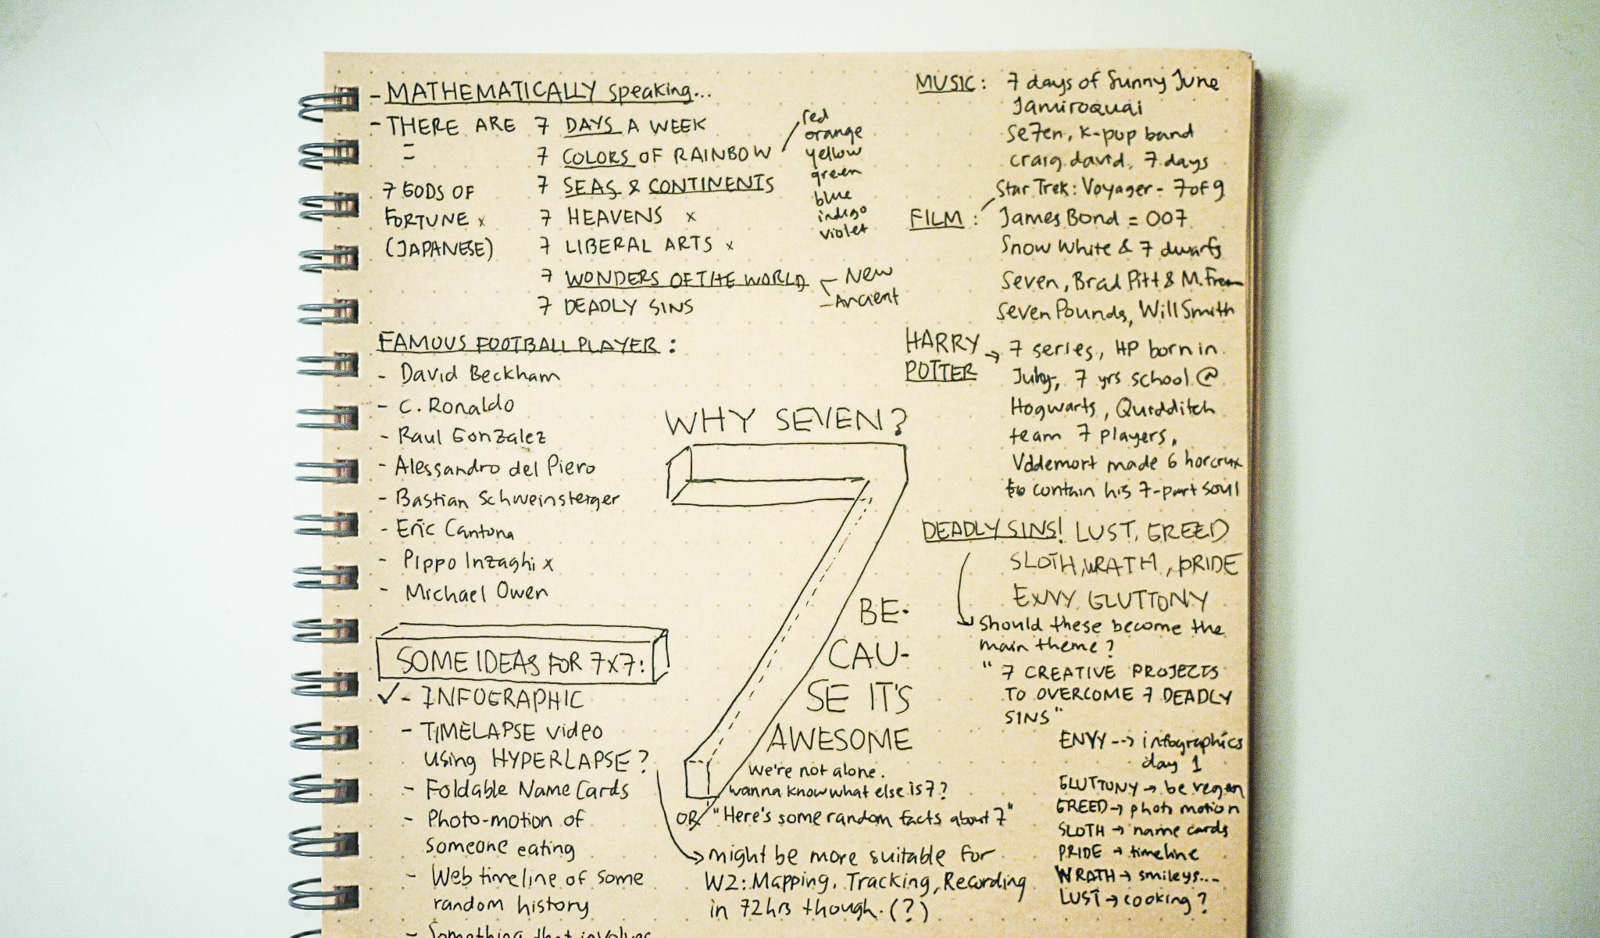 - MATHEMATICALLY speaking...
- THERE ARE 7 DAYS A WEEK
= 7 COLORS OF RAINBOW
red
orange
yellow
green
blue
indigo
violet
7 SEAS & CONTINENTS
7 HEAVENS x
7 LIBERAL ARTS x
7 WONDERS OF THE WORLD
- New
- Ancient
7 DEADLY SINS
7 GODS OF
FORTUNE x
(JAPANESE)
FAMOUS FOOTBALL PLAYER :
- David Beckham
- C. Ronaldo
- Raul Gonzalez
- Alessandro del Piero
- Bastian Schweinsteiger
- Eric Cantona
- Pippo Inzaghi x
- Michael Owen
SOME IDEAS FOR 7x7:
✓ - INFOGRAPHIC
- TIMELAPSE video
using HYPERLAPSE?
- Foldable Name Cards
- Photo-motion of
someone eating
- Web timeline of some
random history
- Something that involves
WHY SEVEN?
7
BE-
CAU-
SE IT'S
AWESOME
we're not alone.
wanna know what else is 7?
OR "Here's some random facts about 7"
→ might be more suitable for
W2: Mapping, Tracking, Recording
in 72hrs though. (?)
MUSIC : 7 days of Sunny June
Jamiroquai
Se7en, K-pop band
craig david, 7 days
Star Trek: Voyager - 7 of 9
FILM : James Bond = 007
Snow White & 7 dwarfs
Seven, Brad Pitt & M.
Seven Pounds, Will Smith
HARRY
POTTER
→ 7 series, HP born in
July, 7 yrs school @
Hogwarts, Quidditch
team 7 players,
Voldemort made 6 horcrux
to contain his 7-part soul
DEADLY SINS! LUST, GREED
SLOTH, WRATH, PRIDE
ENVY GLUTTONY
Should these become the
main theme?
"7 CREATIVE PROJECTS
TO OVERCOME 7 DEADLY
SINS"
ENVY --> infographics
day 1
GLUTTONY → be vegan
GREED → photo motion
SLOTH → name cards
PRIDE → timeline
WRATH → smileys...
LUST → cooking?